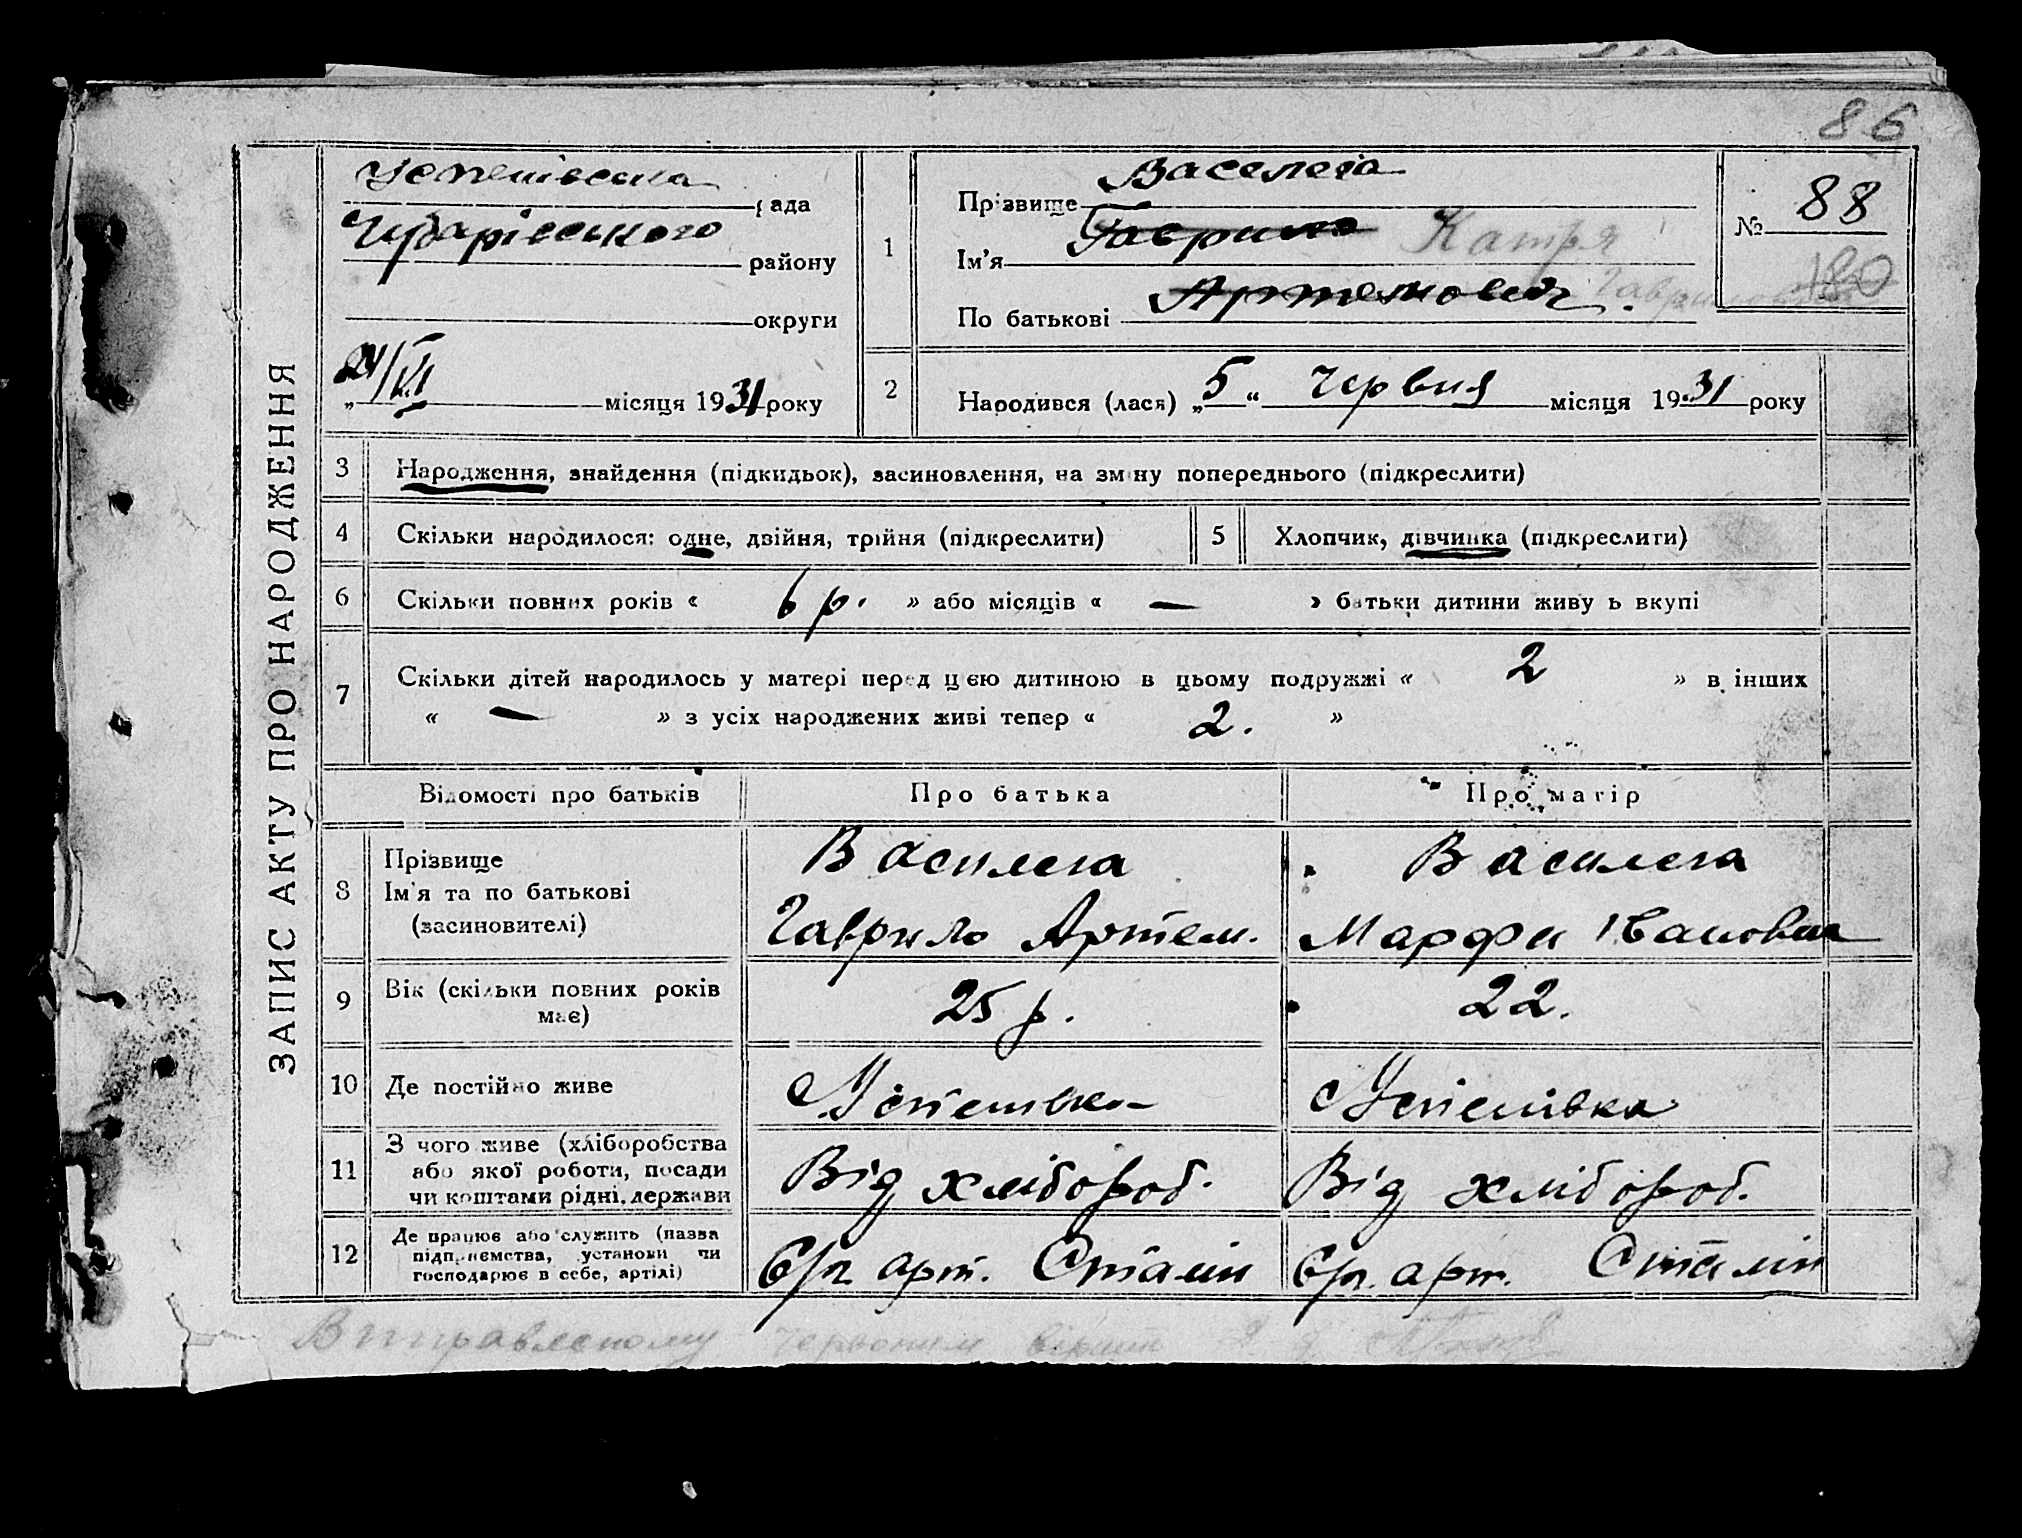 86
ЗАПИС АКТУ ПРО НАРОДЖЕННЯ
Успенівська рада
Чубарівського району
округи
"24/VI місяця 1931 року
1
Прізвище Васелега
Ім'я Гаврило Катря
По батькові Артемович. Гавриловна
№ 88
180
2
Народився (лася) „5“ Червня місяця 1931 року
3 Народження, знайдення (підкидьок), засиновлення, на зміну попереднього (підкреслити)
4 Скільки народилося: одне, двійня, трійня (підкреслити)
5 Хлопчик, дівчинка (підкреслити)
6 Скільки повних років « 6 р. » або місяців « — » батьки дитини живуть вкупі
7 Скільки дітей народилось у матері перед цією дитиною в цьому подружжі « 2 » в інших
« — » з усіх народжених живі тепер « 2. »
Відомості про батьків Про батька Про матір
8 Прізвище Василега Василега
Ім'я та по батькові
(засиновителі) Гаврило Артем. Марфи Івановна
9 Вік (скільки повних років має) 25 р. 22.
10 Де постійно живе Успенівка Успенівка
11 З чого живе (хліборобства
або якої роботи, посади
чи коштами рідні, держави Від хлібороб. Від хлібороб.
12 Де працює або служить (назва
підприємства, установи чи
господарює в себе, артілі) С/г арт. Сталін С/г. арт. Сталін
Виправленому вірить